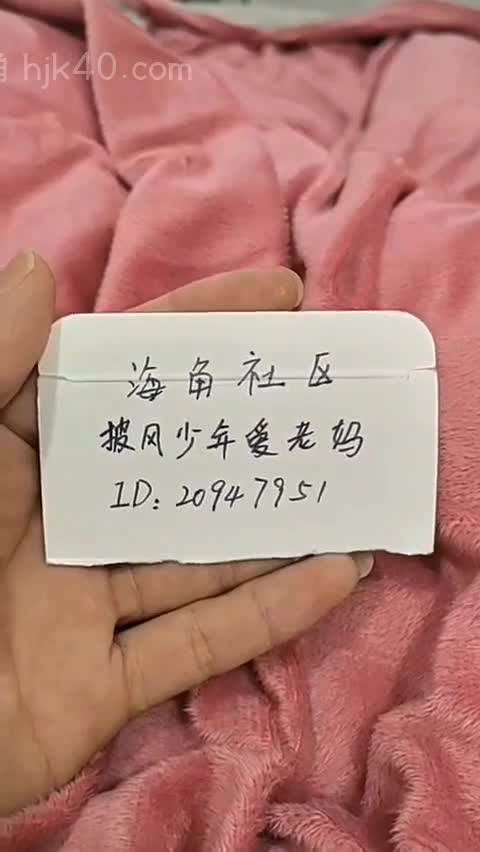 角 hjk40.com
海角社区
披风少年爱老妈
ID: 20947951